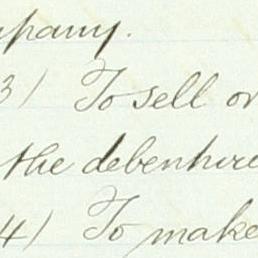 mpany.
3/ To sell or
the debenture
4/ To make